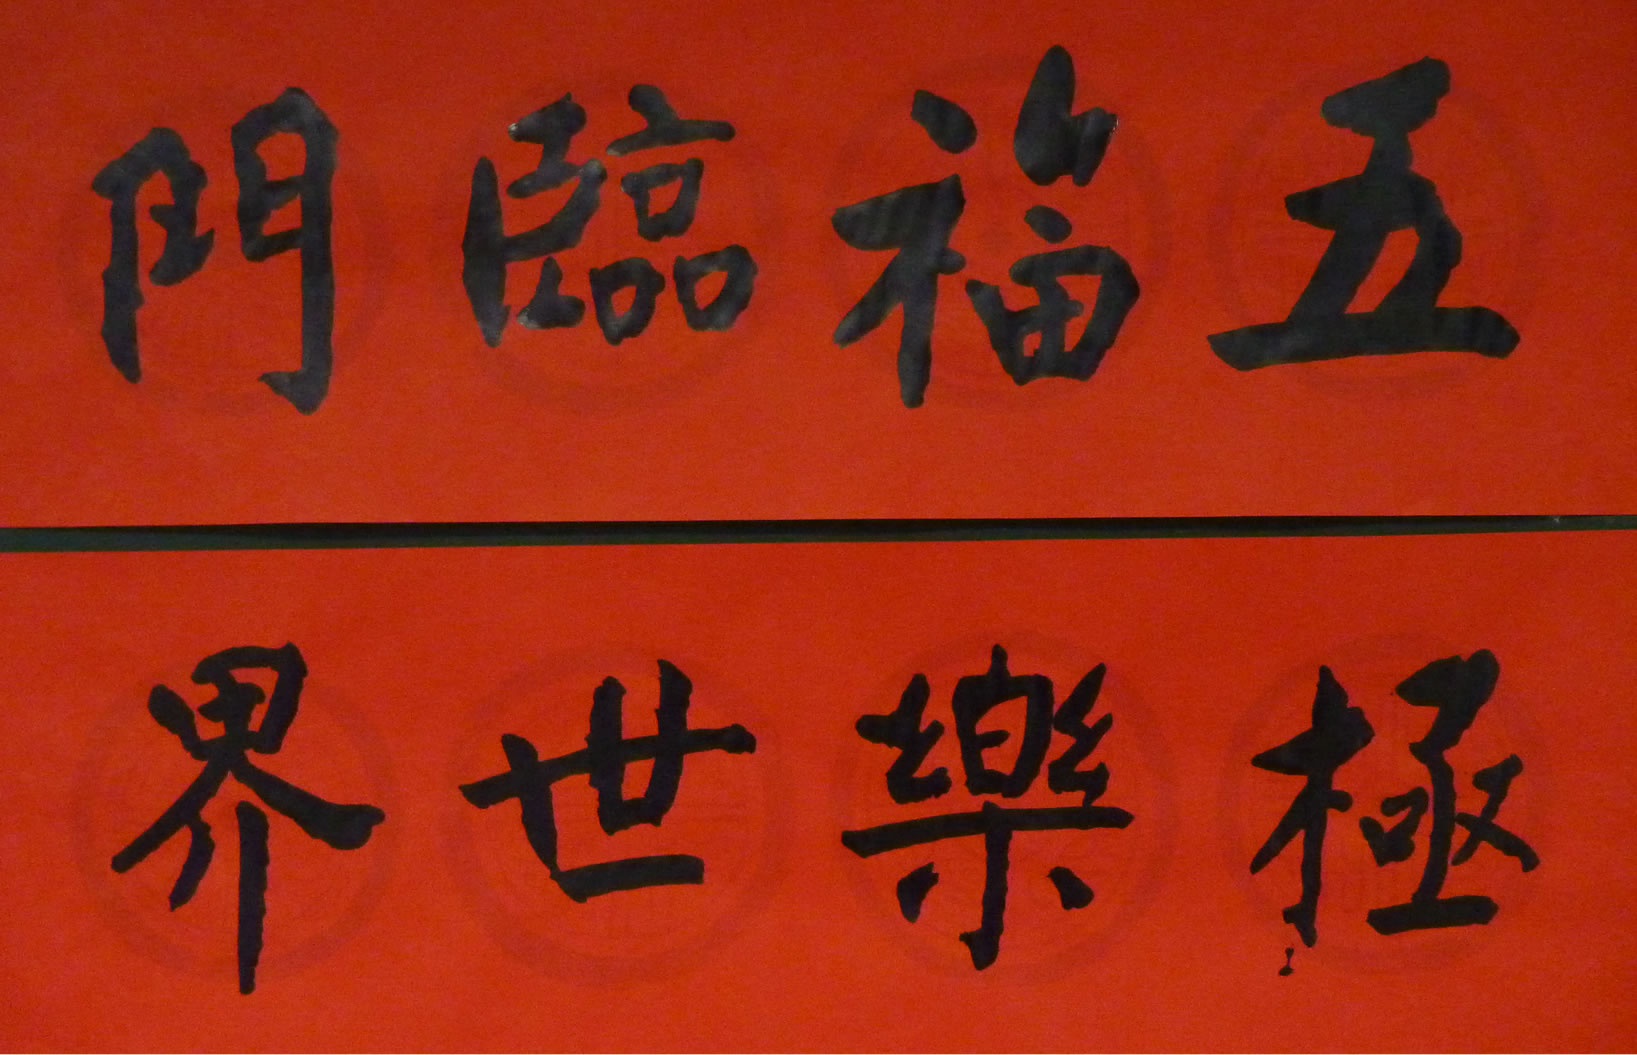 五福臨門
極樂世界